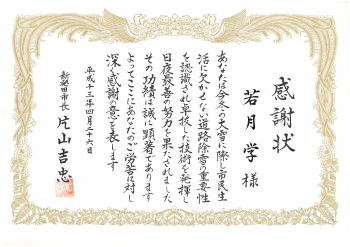 感謝状
若月学様
あなたは今冬の大雪に際し市民生
活に欠かせない道路除雪の重要性
を認識され卓抜した技術を発揮し
日夜最善の努力を果たされました
その功績は誠に顕著であります
よってここにあなたのご労苦に対し
深く感謝の意を表します
平成十三年四月二十六日
新発田市長 片山吉忠